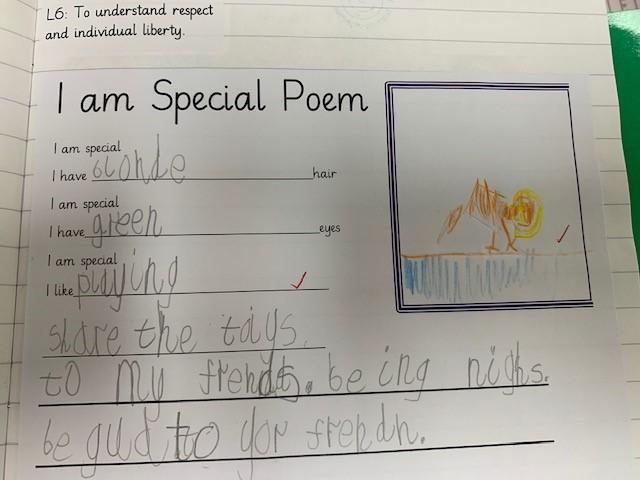 L6: To understand respect
and individual liberty.
I am Special Poem
I am special
I have blonde hair
I am special
I have green eyes
I am special
I like playing
share the tays.
to my frends. be ing nighs.
be gud to yor frendn.